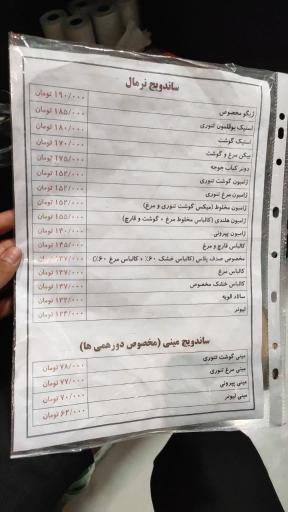 ساندویچ نرمال
ژیگو مخصوص ۱۹۰/۰۰۰ تومان
استیک بوقلمون تنوری ۱۸۵/۰۰۰ تومان
استیک گوشت ۱۸۰/۰۰۰ تومان
بیکن مرغ و گوشت ۱۷۰/۰۰۰ تومان
دونر کباب جوجه ۱۷۵/۰۰۰ تومان
ژامبون گوشت تنوری ۱۵۲/۰۰۰ تومان
ژامبون مرغ تنوری ۱۵۲/۰۰۰ تومان
ژامبون مخلوط (میکس گوشت تنوری و مرغ) ۱۵۲/۰۰۰ تومان
ژامبون هلندی (کالباس مخلوط مرغ + گوشت و قارچ) ۱۵۵/۰۰۰ تومان
ژامبون پپرونی ۱۴۰/۰۰۰ تومان
کالباس قارچ و مرغ ۱۴۵/۰۰۰ تومان
مخصوص صدف پلاس (کالباس خشک ۶۰٪ + کالباس مرغ ۶۰٪) ۱۳۷/۰۰۰ تومان
کالباس مرغ ۱۳۷/۰۰۰ تومان
کالباس خشک مخصوص ۱۳۷/۰۰۰ تومان
سالاد الویه ۱۳۲/۰۰۰ تومان
لیونر ۱۲۴/۰۰۰ تومان
ساندویچ مینی (مخصوص دورهمی ها)
مینی گوشت تنوری ۷۸/۰۰۰ تومان
مینی مرغ تنوری ۷۷/۰۰۰ تومان
مینی پپرونی ۷۰/۰۰۰ تومان
مینی لیونر ۶۲/۰۰۰ تومان